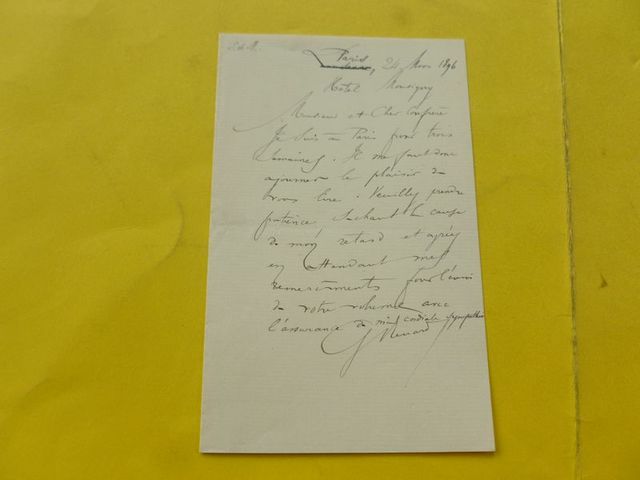 Paris
Lausanne, 24 Mars 1896
Hotel Monsigny
Monsieur et Cher Confrère
Je suis à Paris pour trois
semaines. Il me faut donc
ajourner le plaisir de
vous lire. Veuillez prendre
patience sachant la cause
de mon retard et agréez
en attendant mes
remerciements pour l'envoi
de votre volume avec
l'assurance de ma cordiale sympathie
G Renard